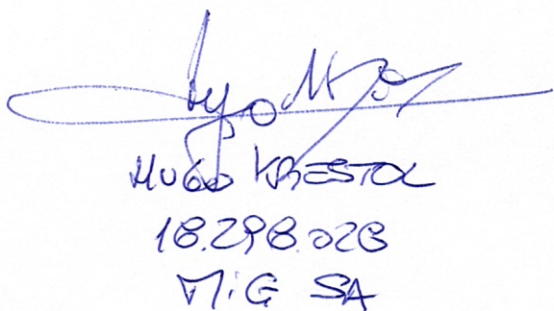 HUGO KRESTOL
18.298.028
MiG SA